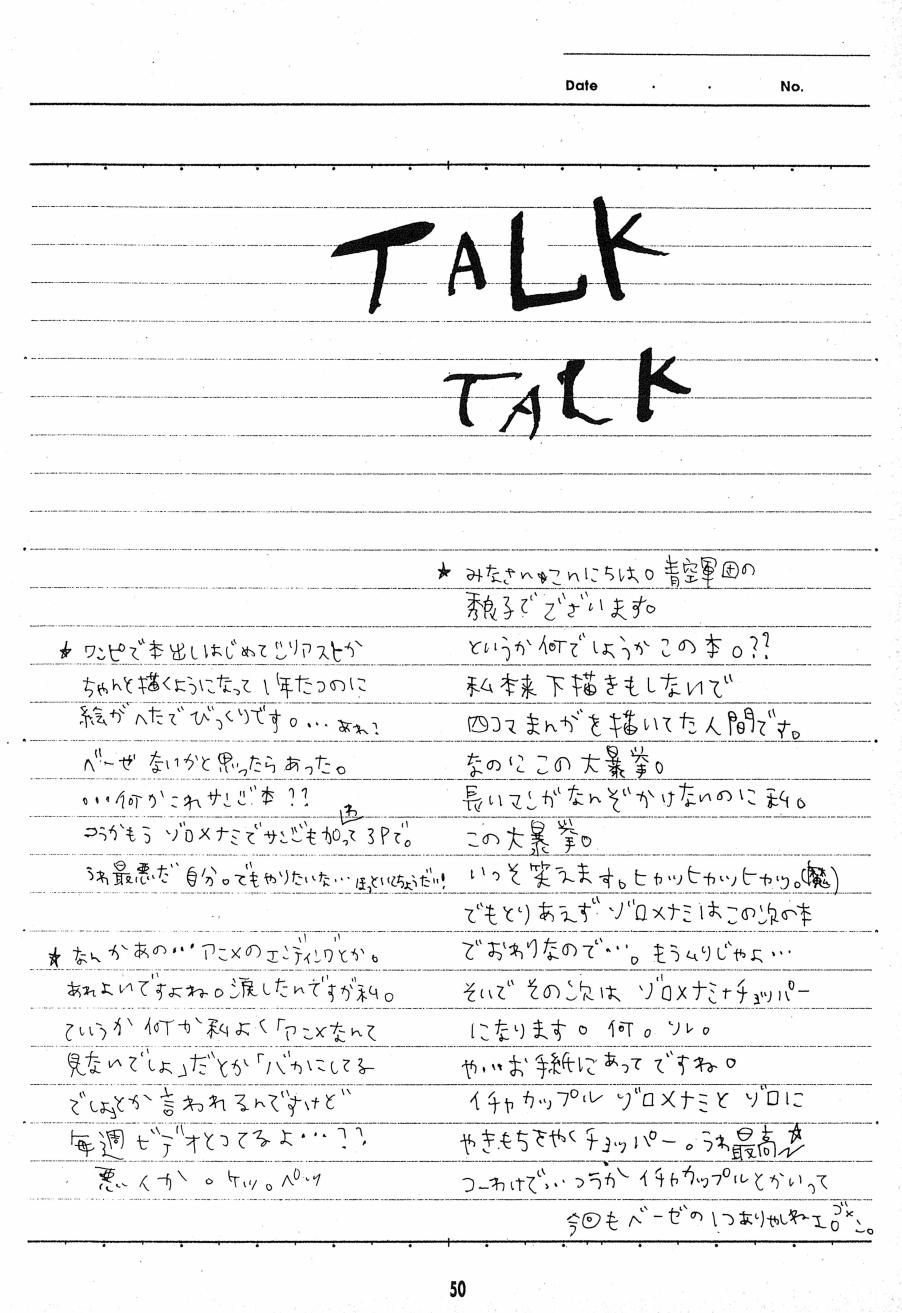 Date ・ ・ No.
TALK
TALK
★ みなさんこんにちは。青空軍団の
秀良子でございます。
というか何でしょうかこの本。??
私本来下描きもしないで
四コマまんがを描いてた人間です。
なのにこの大暴挙。
長いマンがなんぞかけないのに私。
この大暴挙。
いっそ笑えます。ヒカッヒカッヒカッ。(魔)
でもとりあえずゾロ×ナミはこの次の本
でおわりなので…。もうムリじゃよ…
そいでその次はゾロ×ナミ+チョッパー
になります。何。ソレ。
や…お手紙にあってですね。
イチャカップルゾロ×ナミとゾロに
やきもちをやくチョッパー。うわ最高★
つーわけで…つうかイチャカップルとかいって
今回もベーゼの1つありゃしねェ。ゴメン。
★ ワンピで本出しはじめてじリアストか
ちゃんと描くようになって1年たつのに
絵がへたでびっくりです。…あれ?
ベーゼないかと思ったらあった。
…何かこれサンジ本??
つうかもうゾロ×ナミでサンジも加わって3Pで。
うわ最悪だ自分。でもやりたいな…ほっといてちょうだい!
★ なんかあの…アニメのエンディングとか。
あれよいですよね。涙したんですが私。
ていうか何か私よく「アニメなんて
見ないでしょ」だとか「バカにしてる
でしょ」とか言われるんですけど
毎週ビデオとってるよ…??
悪いか。ケッ。ペッ
50